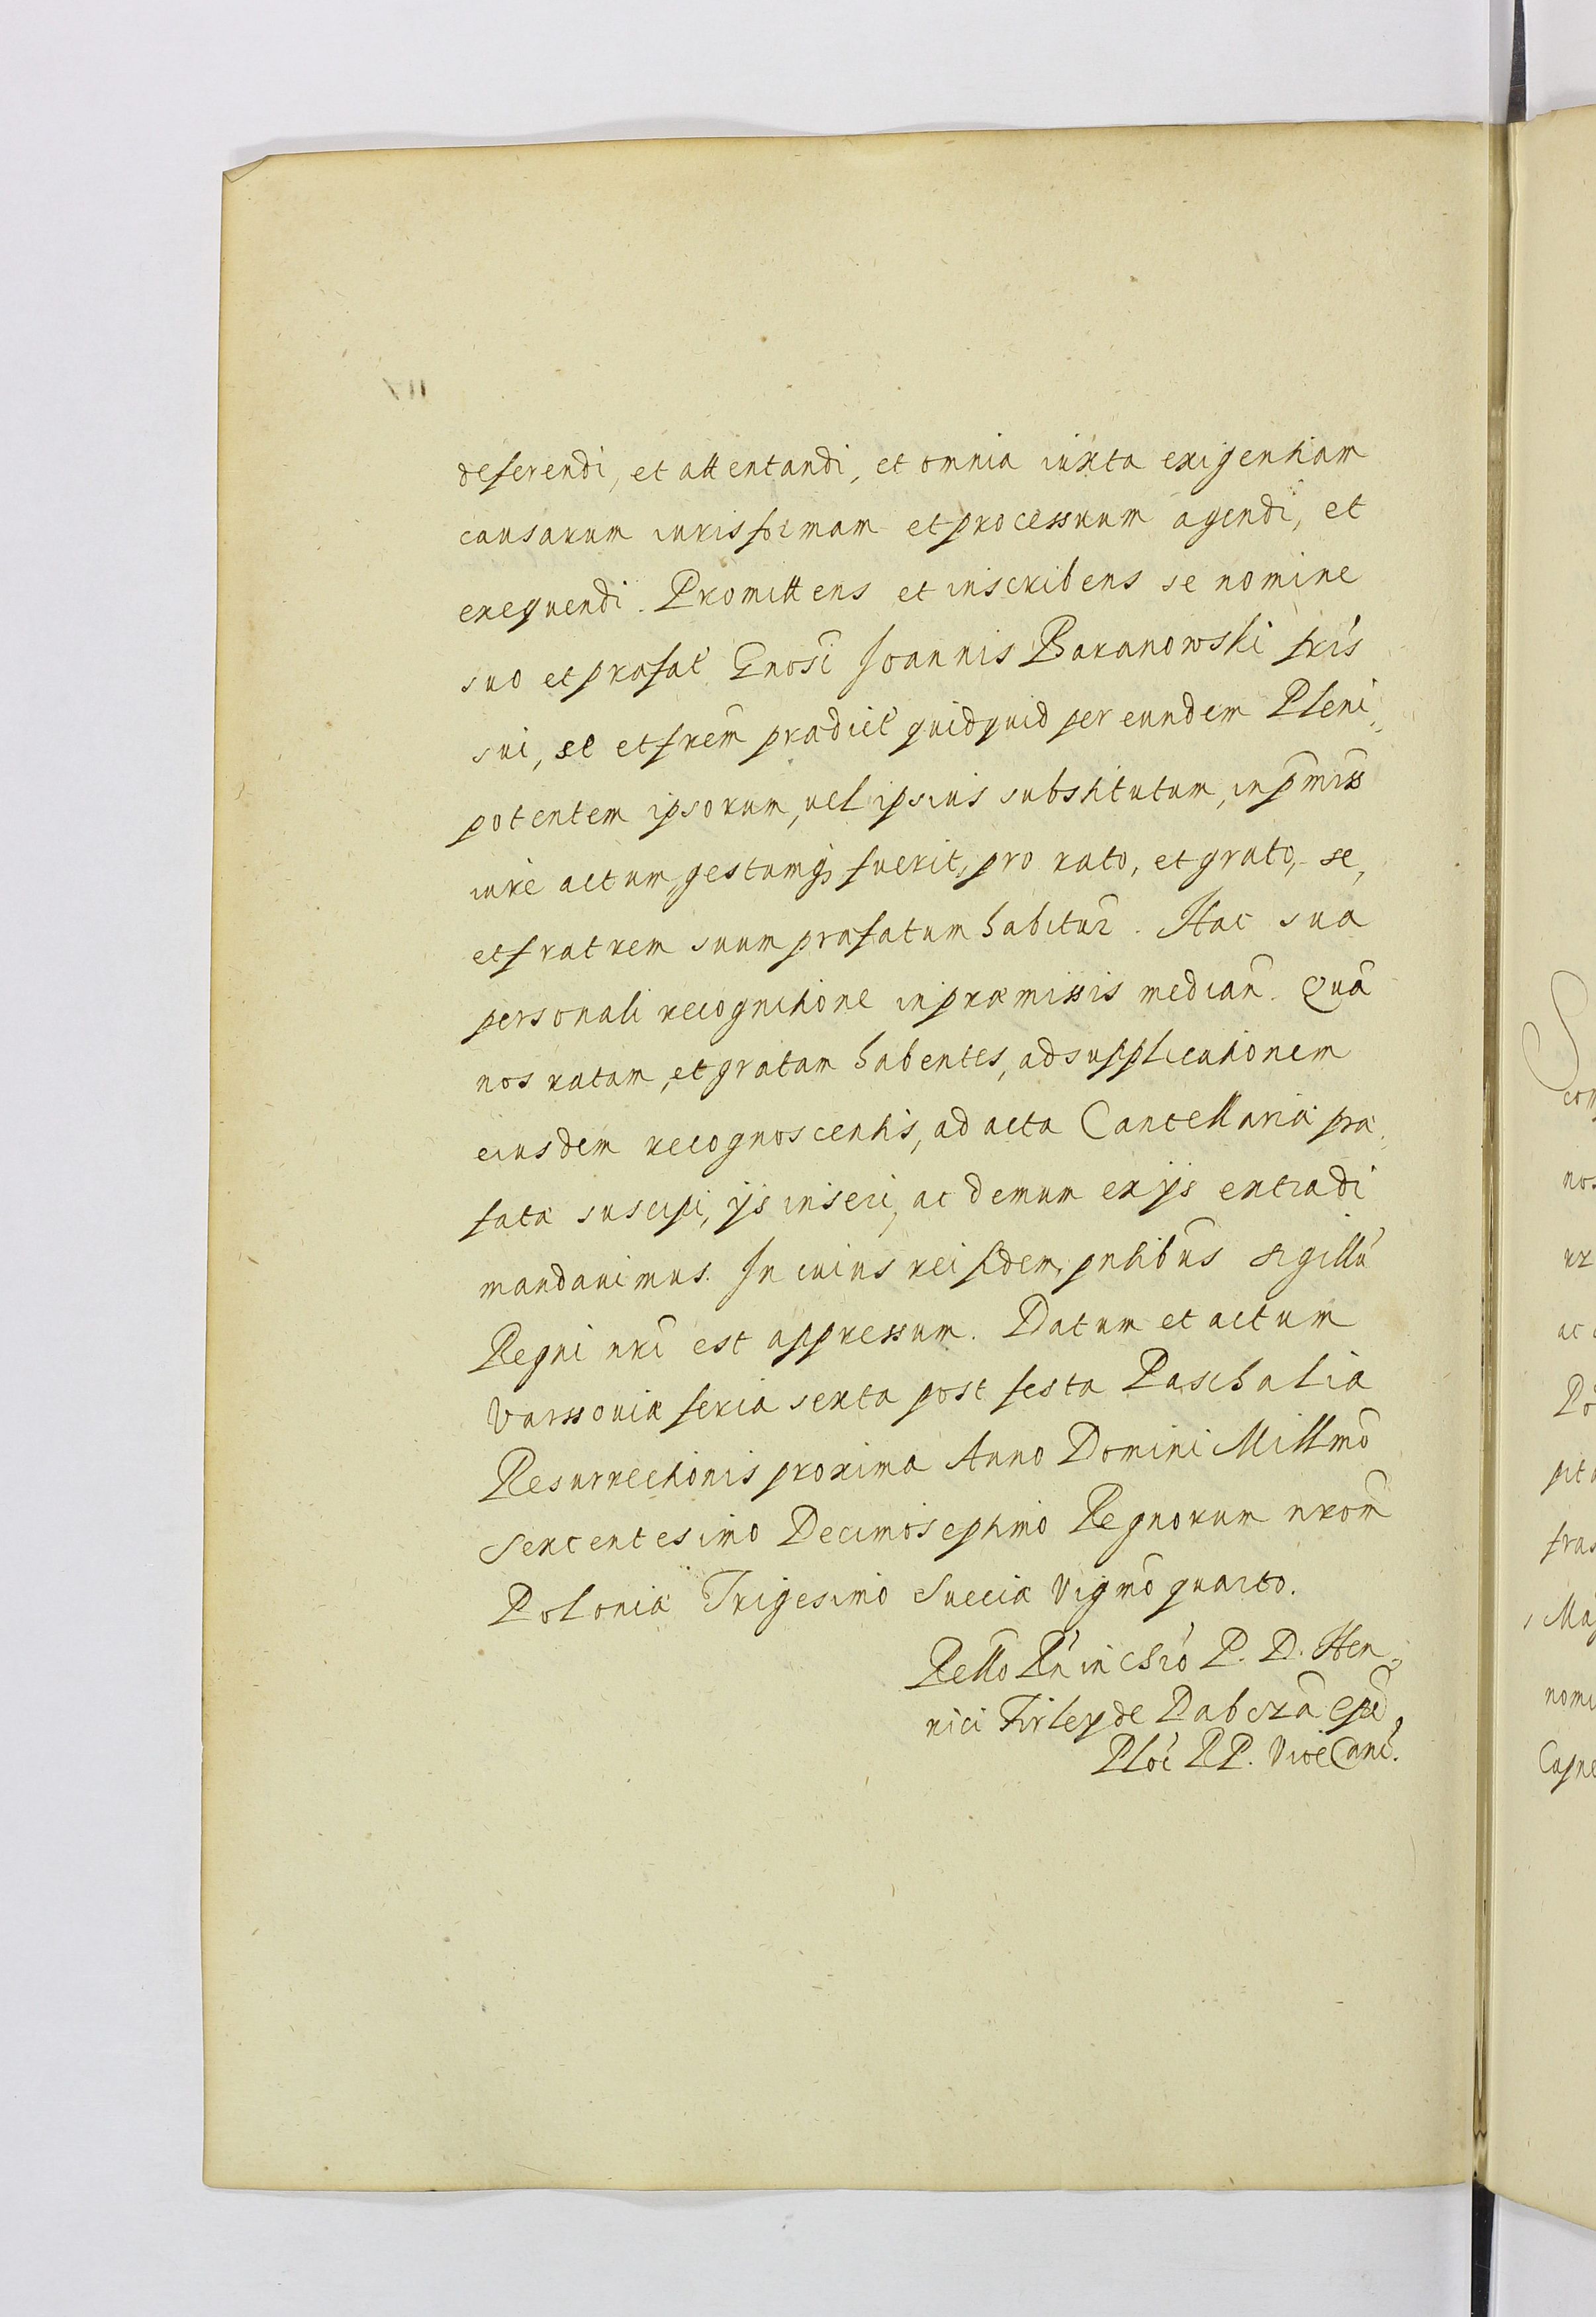 deferendi, et attentandi, et omnia iuxta exigentiam
causarum iuris formam et processuum agendi, et
exequendi. Promittens et inscribens se nomine
suo et præfat Gnosi Joannis Baranowski fris
sui, se et frem prædict quidquid per eundem Pleni,
potentem ipsorum, vel ipsius substitutum, in pmiss
iure actum, gestumq fuerit, pro rato, et grato, se,
et fratrem suum præfatum habitur. Hac sua
personali recognitione in præmissis median. Quã
nos ratam, et gratam habentes, ad supplicationem
eiusdem recognoscentis, ad acta Cancellariæ præ,
fatæ suscipi, ijs inseri, ac demum ex ijs extradi
mandavimus. In cuius rei fidem, pntibus sigillu
Regni nri est appressum. Datum et actum
Varssoviæ feria sexta post festa Paschalia
Resurrectionis proxima Anno Domini Millmo
Sexcentesimo Decimoseptimo Regnorum nrom
Poloniæ Trigesimo Sueciæ Vigmo quarto.
Rello Rn in Chro P. D. Hen,
rici Firley de Dabrza Epi
Ploc RP. ViceCanc.